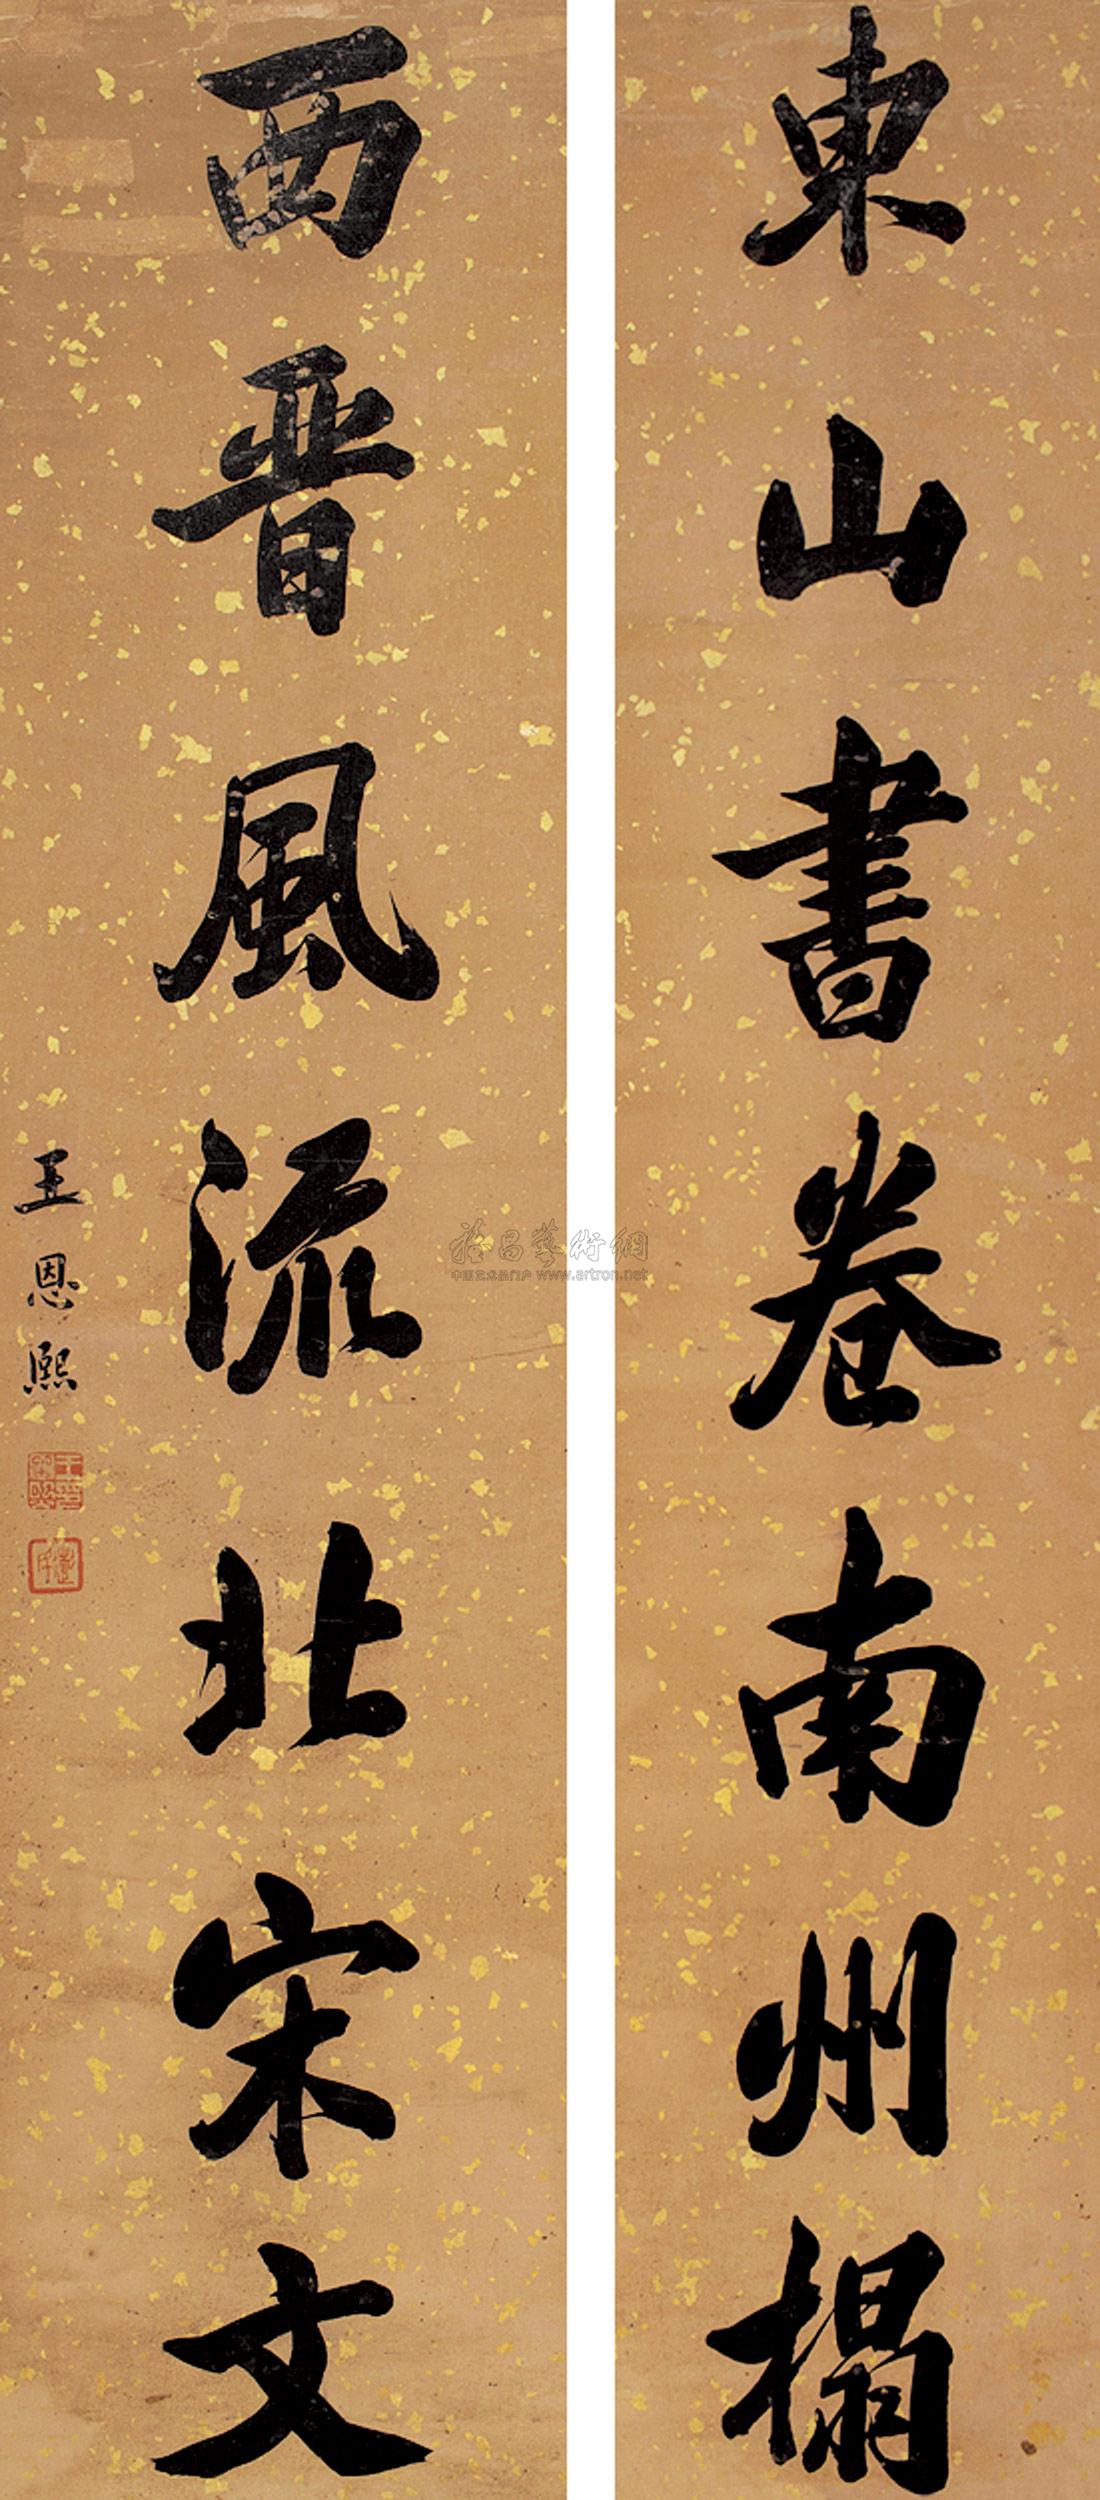 東山書卷南州榻
西晋風流北宋文
王恩熙
雅昌藝術網
中国艺术品门户 www.artron.net